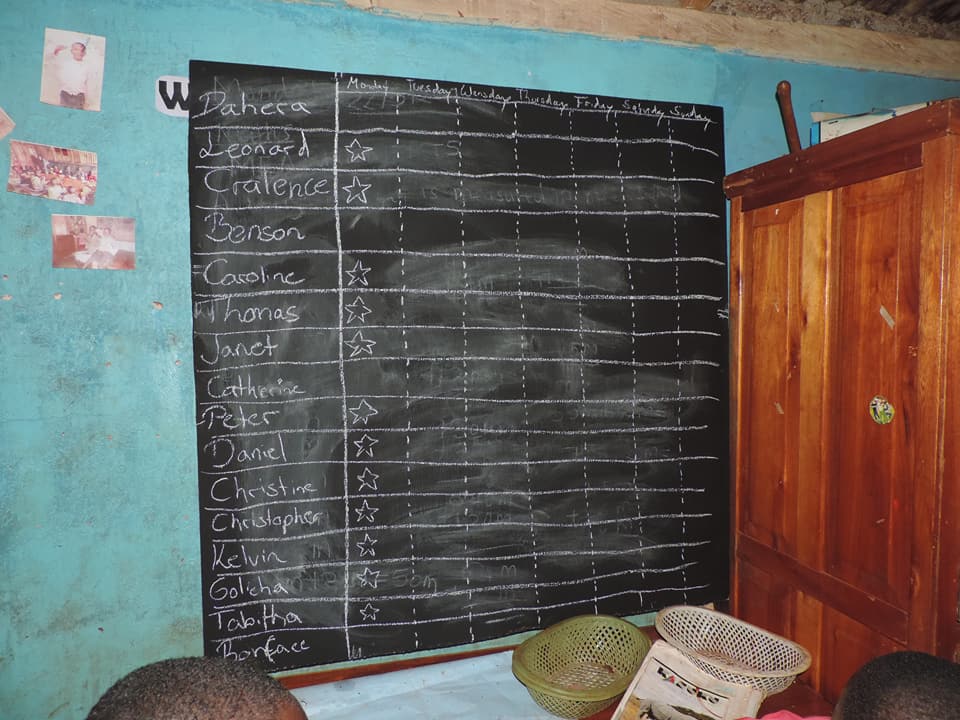 W
Monday Tuesday Wensday Thursday Friday Saturday Sunday
Dahera
Leonard ☆
Cralence ☆
Benson
Caroline ☆
Thomas ☆
Janet ☆
Catherine
Peter ☆
Daniel ☆
Christine ☆
Christopher ☆
Kelvin ☆
Golicha ☆
Tabitha ☆
Boniface